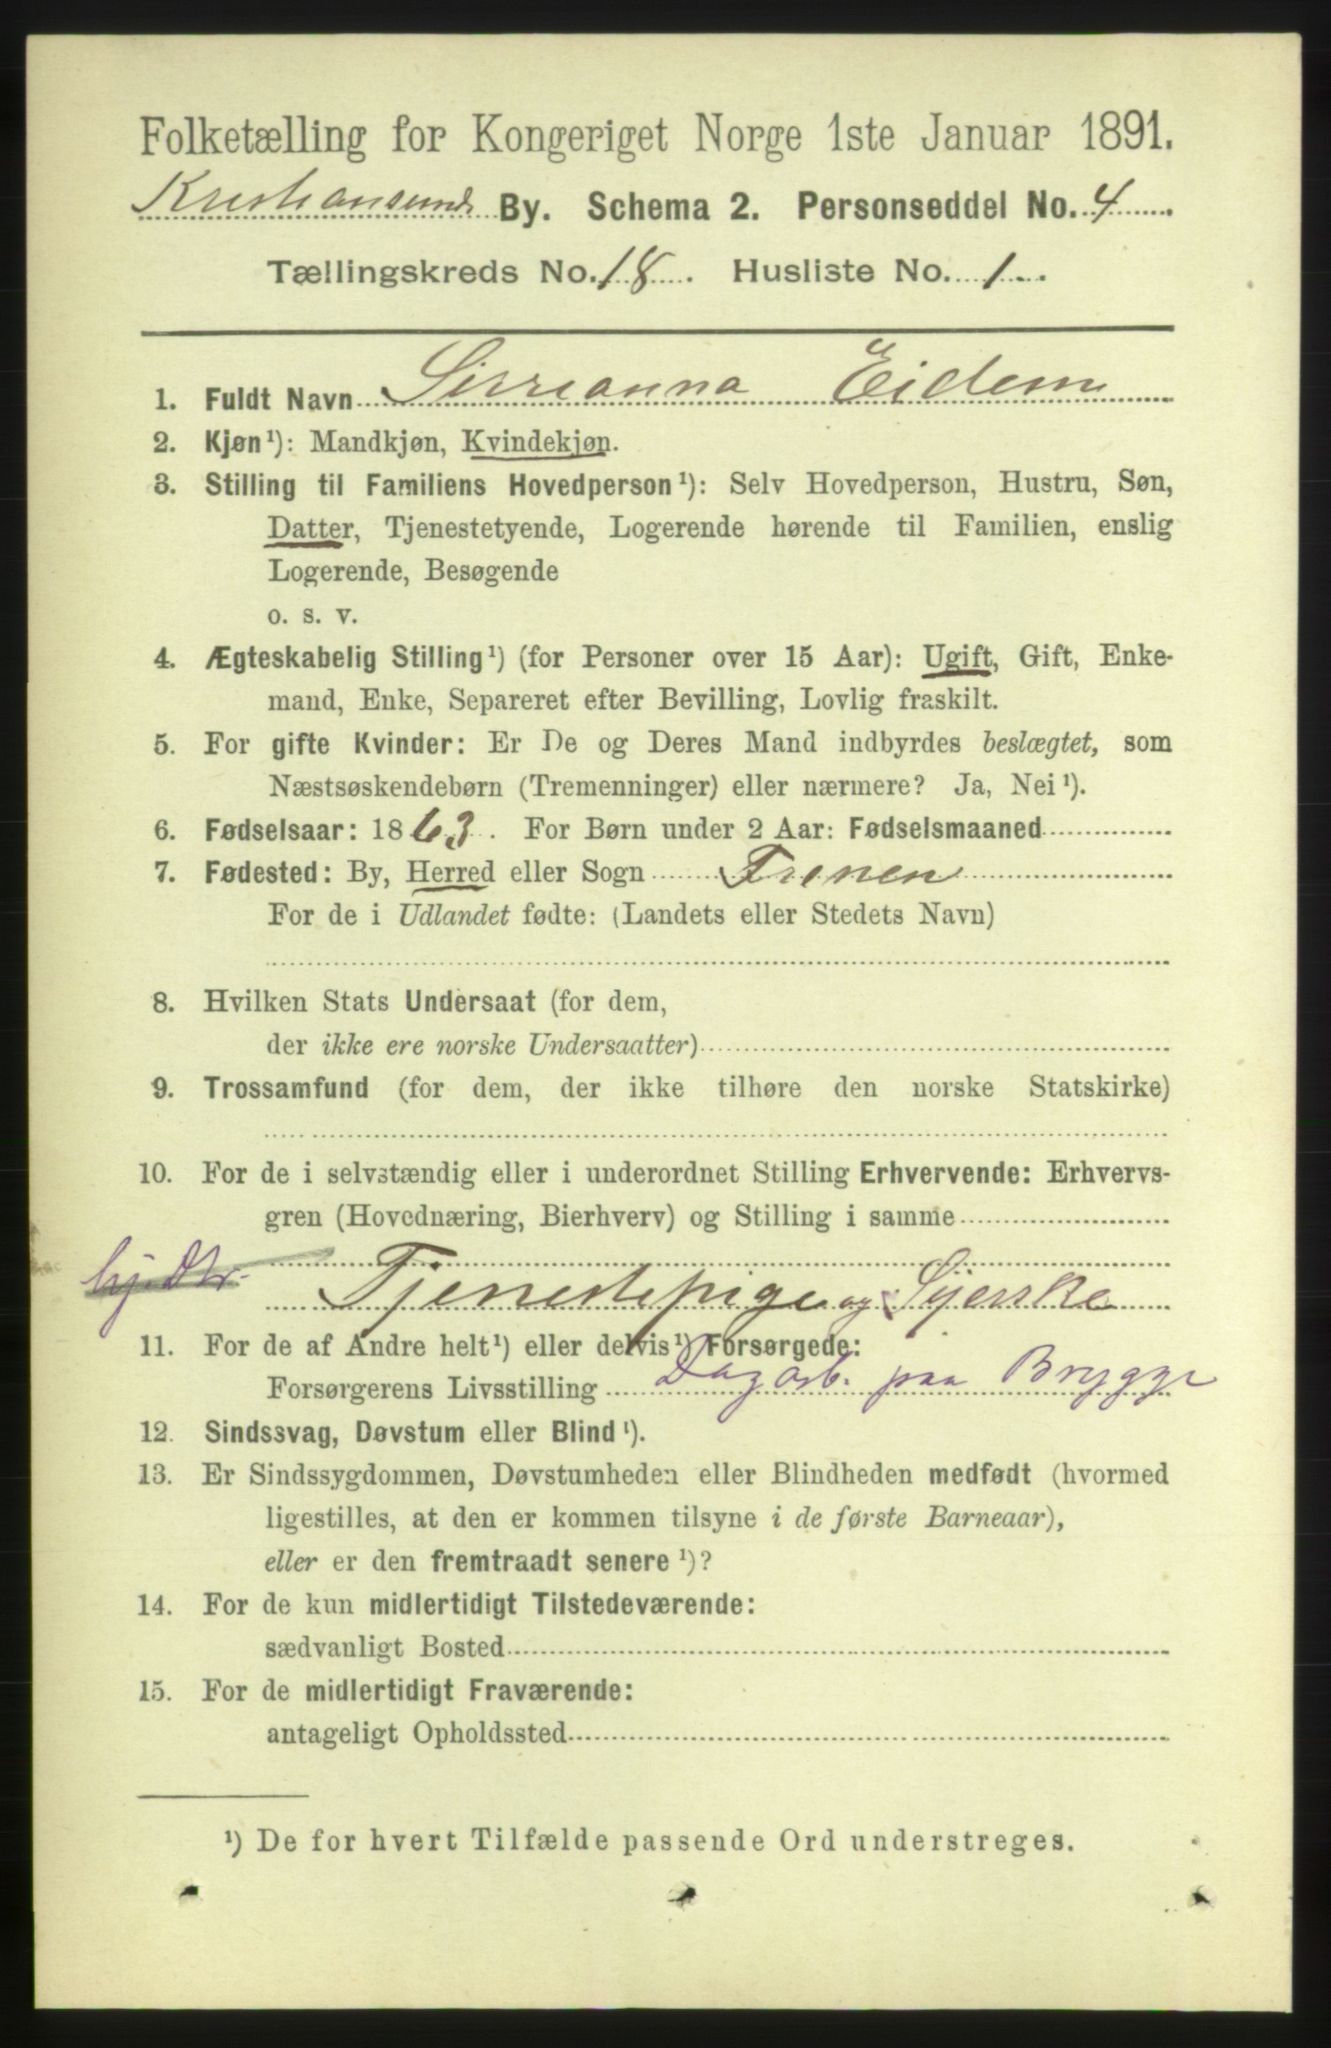 Folketælling for Kongeriget Norge 1ste Januar 1891.
Kristiansund By. Schema 2. Personseddel No. 4
Tællingskreds No. 18. Husliste No. 1.
1. Fuldt Navn Sirianna Eidem
2. Kjøn ¹): Mandkjøn, Kvindekjøn.
3. Stilling til Familiens Hovedperson ¹): Selv Hovedperson, Hustru, Søn,
Datter, Tjenestetyende, Logerende hørende til Familien, enslig
Logerende, Besøgende
o. s. v.
4. Ægteskabelig Stilling ¹) (for Personer over 15 Aar): Ugift, Gift, Enke-
mand, Enke, Separeret efter Bevilling, Lovlig fraskilt.
5. For gifte Kvinder: Er De og Deres Mand indbyrdes beslægtet, som
Næstsøskendebørn (Tremenninger) eller nærmere? Ja, Nei ¹).
6. Fødselsaar: 1863. For Børn under 2 Aar: Fødselsmaaned
7. Fødested: By, Herred eller Sogn Frenen
For de i Udlandet fødte: (Landets eller Stedets Navn)
8. Hvilken Stats Undersaat (for dem,
der ikke ere norske Undersaatter)
9. Trossamfund (for dem, der ikke tilhøre den norske Statskirke)
10. For de i selvstændig eller i underordnet Stilling Erhvervende: Erhvervs-
gren (Hovednæring, Bierhverv) og Stilling i samme
hj. Dtr. Tjenestepige og Syerske
11. For de af Andre helt ¹) eller delvis ¹) Forsørgede:
Forsørgerens Livsstilling Dagarb. paa Brygge
12. Sindssvag, Døvstum eller Blind ¹).
13. Er Sindssygdommen, Døvstumheden eller Blindheden medfødt (hvormed
ligestilles, at den er kommen tilsyne i de første Barneaar),
eller er den fremtraadt senere ¹)?
14. For de kun midlertidigt Tilstedeværende:
sædvanligt Bosted
15. For de midlertidigt Fraværende:
antageligt Opholdssted
¹) De for hvert Tilfælde passende Ord understreges.